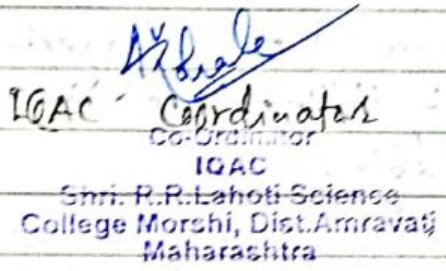 IQAC Coordinator
Co-Ordinator
IQAC
Shri. R.R.Lahoti Science
College Morshi, Dist.Amravati
Maharashtra